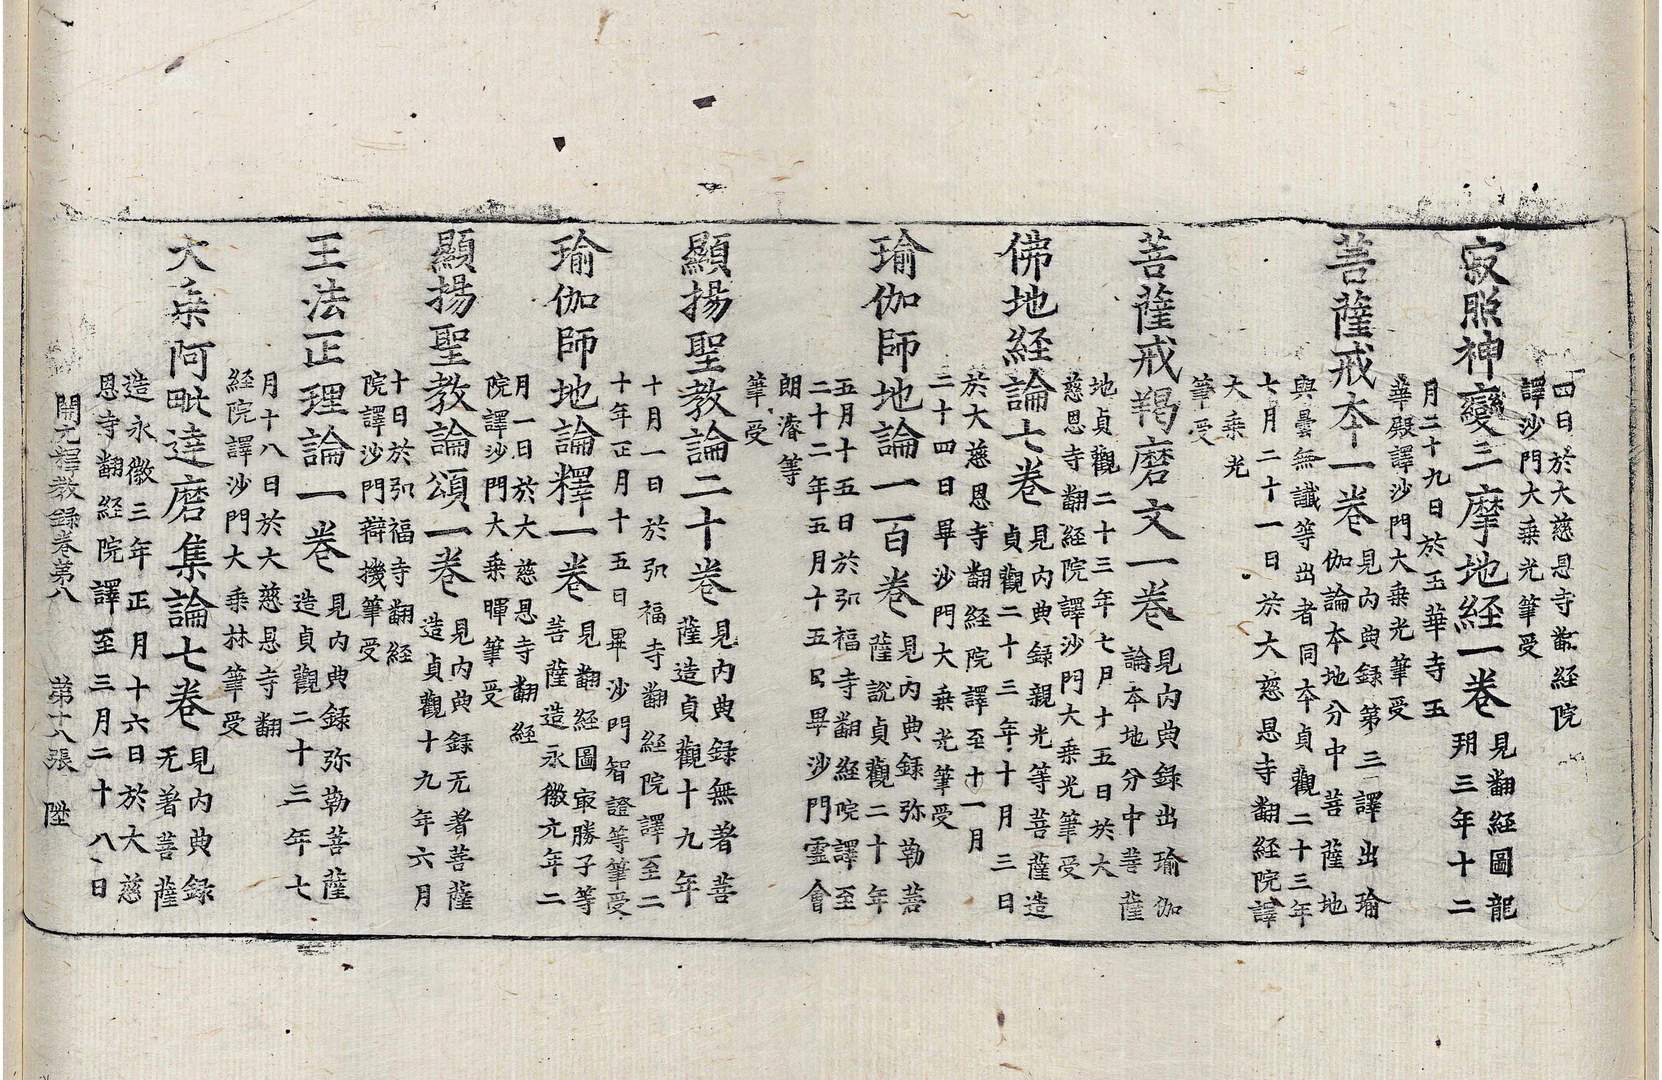 四日於大慈恩寺翻經院
譯沙門大乘光筆受
寂照神變三摩地經一卷
見翻經圖龍
朔三年十二
月二十九日於玉華寺玉
華殿譯沙門大乘光筆受
菩薩戒本一卷
見內典録第三譯出瑜
伽論本地分中菩薩地
與曇無讖等出者同本貞觀二十三年
七月二十一日於大慈恩寺翻經院譯
大乘光
筆受
菩薩戒羯磨文一卷
見內典録出瑜伽
論本地分中菩薩
地貞觀二十三年七月十五日於大
慈恩寺翻經院譯沙門大乘光筆受
佛地經論七卷
見內典録親光等菩薩造
貞觀二十三年十月三日
於大慈恩寺翻經院譯至十一月
二十四日畢沙門大乘光筆受
瑜伽師地論一百卷
見內典録弥勒菩
薩說貞觀二十年
五月十五日於弘福寺翻經院譯至
二十二年五月十五日畢沙門霊會
朗濬等
筆受
顯揚聖教論二十卷
見內典録無著菩
薩造貞觀十九年
十月一日於弘福寺翻經院譯至二
十年正月十五日畢沙門智證等筆受
瑜伽師地論釋一卷
見翻經圖㝡勝子等
菩薩造永徽元年二
月一日於大慈恩寺翻經
院譯沙門大乘暉筆受
顯揚聖教論頌一卷
見內典録无著菩薩
造貞觀十九年六月
十日於弘福寺翻經
院譯沙門辯機筆受
王法正理論一卷
見內典録弥勒菩薩
造貞觀二十三年七
月十八日於大慈恩寺翻
經院譯沙門大乘林筆受
大乘阿毗達磨集論七卷
見內典録
无著菩薩
造永徽三年正月十六日於大慈
恩寺翻經院譯至三月二十八日
開元釋教録卷第八　第十八張　陞